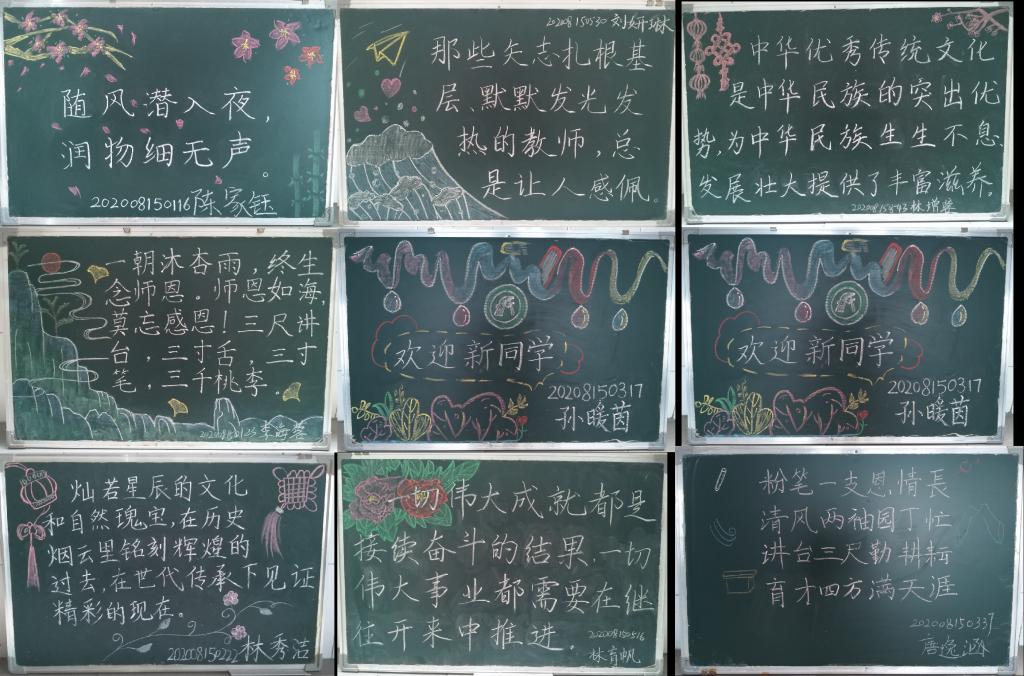 随风潜入夜，
润物细无声。
202008150116陈家钰
202008150530 刘妍琳
那些矢志扎根基
层、默默发光发
热的教师，总
是让人感佩。
中华优秀传统文化
是中华民族的突出优
势，为中华民族生生不息、
发展壮大提供了丰富滋养。
一朝沐杏雨，终生
念师恩。师恩如海，
莫忘感恩！三尺讲
台，三寸舌，三寸
笔，三千桃李。
欢迎新同学
202008150317
孙暖茵
欢迎新同学
202008150317
孙暖茵
灿若星辰的文化
和自然瑰宝，在历史
烟云里铭刻辉煌的
过去，在世代传承下见证
精彩的现在。
202008150222林秀洁
一切伟大成就都是
接续奋斗的结果，一切
伟大事业都需要在继
往开来中推进。
202008150516
林育帆
粉笔一支恩情長
清风两袖园丁忙
讲台三尺勤耕耘
育才四方满天涯
202008150337
唐逸涵